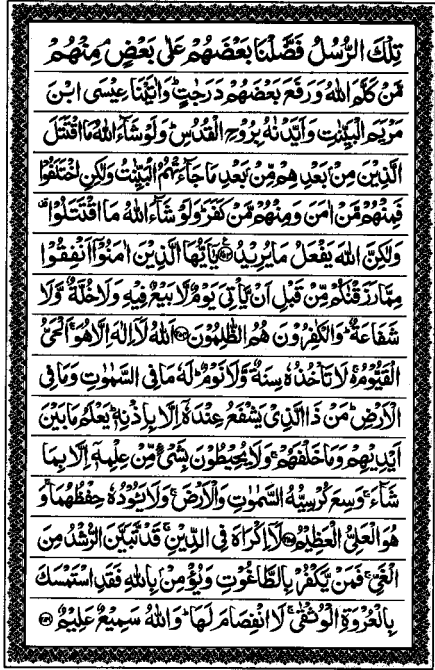 تِلْكَ الرُّسُلُ فَضَّلْنَا بَعْضَهُمْ عَلٰى بَعْضٍ ۘ مِنْهُمْ
مَّنْ كَلَّمَ اللّٰهُ وَرَفَعَ بَعْضَهُمْ دَرَجٰتٍ ؕ وَاٰتَيْنَا عِيْسَى ابْنَ
مَرْيَمَ الْبَيِّنٰتِ وَاَيَّدْنٰهُ بِرُوْحِ الْقُدُسِ ؕ وَلَوْ شَآءَ اللّٰهُ مَا اقْتَتَلَ
الَّذِيْنَ مِنْۢ بَعْدِهِمْ مِّنْۢ بَعْدِ مَا جَآءَتْهُمُ الْبَيِّنٰتُ وَلٰكِنِ اخْتَلَفُوْا
فَمِنْهُمْ مَّنْ اٰمَنَ وَمِنْهُمْ مَّنْ كَفَرَ ؕ وَلَوْ شَآءَ اللّٰهُ مَا اقْتَتَلُوْا ۟
وَلٰكِنَّ اللّٰهَ يَفْعَلُ مَا يُرِيْدُ ﴿۲۵۳﴾ يٰۤاَيُّهَا الَّذِيْنَ اٰمَنُوْۤا اَنْفِقُوْا
مِمَّا رَزَقْنٰكُمْ مِّنْ قَبْلِ اَنْ يَّاْتِيَ يَوْمٌ لَّا بَيْعٌ فِيْهِ وَلَا خُلَّةٌ وَّلَا
شَفَاعَةٌ ؕ وَالْكٰفِرُوْنَ هُمُ الظّٰلِمُوْنَ ﴿۲۵۴﴾ اَللّٰهُ لَاۤ اِلٰهَ اِلَّا هُوَ ۚ اَلْحَيُّ
الْقَيُّوْمُ ۚ لَا تَاْخُذُهٗ سِنَةٌ وَّلَا نَوْمٌ ؕ لَهٗ مَا فِي السَّمٰوٰتِ وَمَا فِي
الْاَرْضِ ؕ مَنْ ذَا الَّذِيْ يَشْفَعُ عِنْدَهٗۤ اِلَّا بِاِذْنِهٖ ؕ يَعْلَمُ مَا بَيْنَ
اَيْدِيْهِمْ وَمَا خَلْفَهُمْ ۚ وَلَا يُحِيْطُوْنَ بِشَيْءٍ مِّنْ عِلْمِهٖۤ اِلَّا بِمَا
شَآءَ ۚ وَسِعَ كُرْسِيُّهُ السَّمٰوٰتِ وَالْاَرْضَ ۚ وَلَا يَـُٔوْدُهٗ حِفْظُهُمَا ۚ وَ
هُوَ الْعَلِيُّ الْعَظِيْمُ ﴿۲۵۵﴾ لَاۤ اِكْرَاهَ فِي الدِّيْنِ ۙ قَدْ تَّبَيَّنَ الرُّشْدُ مِنَ
الْغَيِّ ۚ فَمَنْ يَّكْفُرْ بِالطَّاغُوْتِ وَيُؤْمِنْۢ بِاللّٰهِ فَقَدِ اسْتَمْسَكَ
بِالْعُرْوَةِ الْوُثْقٰى ۗ لَا انْفِصَامَ لَهَا ؕ وَاللّٰهُ سَمِيْعٌ عَلِيْمٌ ﴿۲۵۶﴾